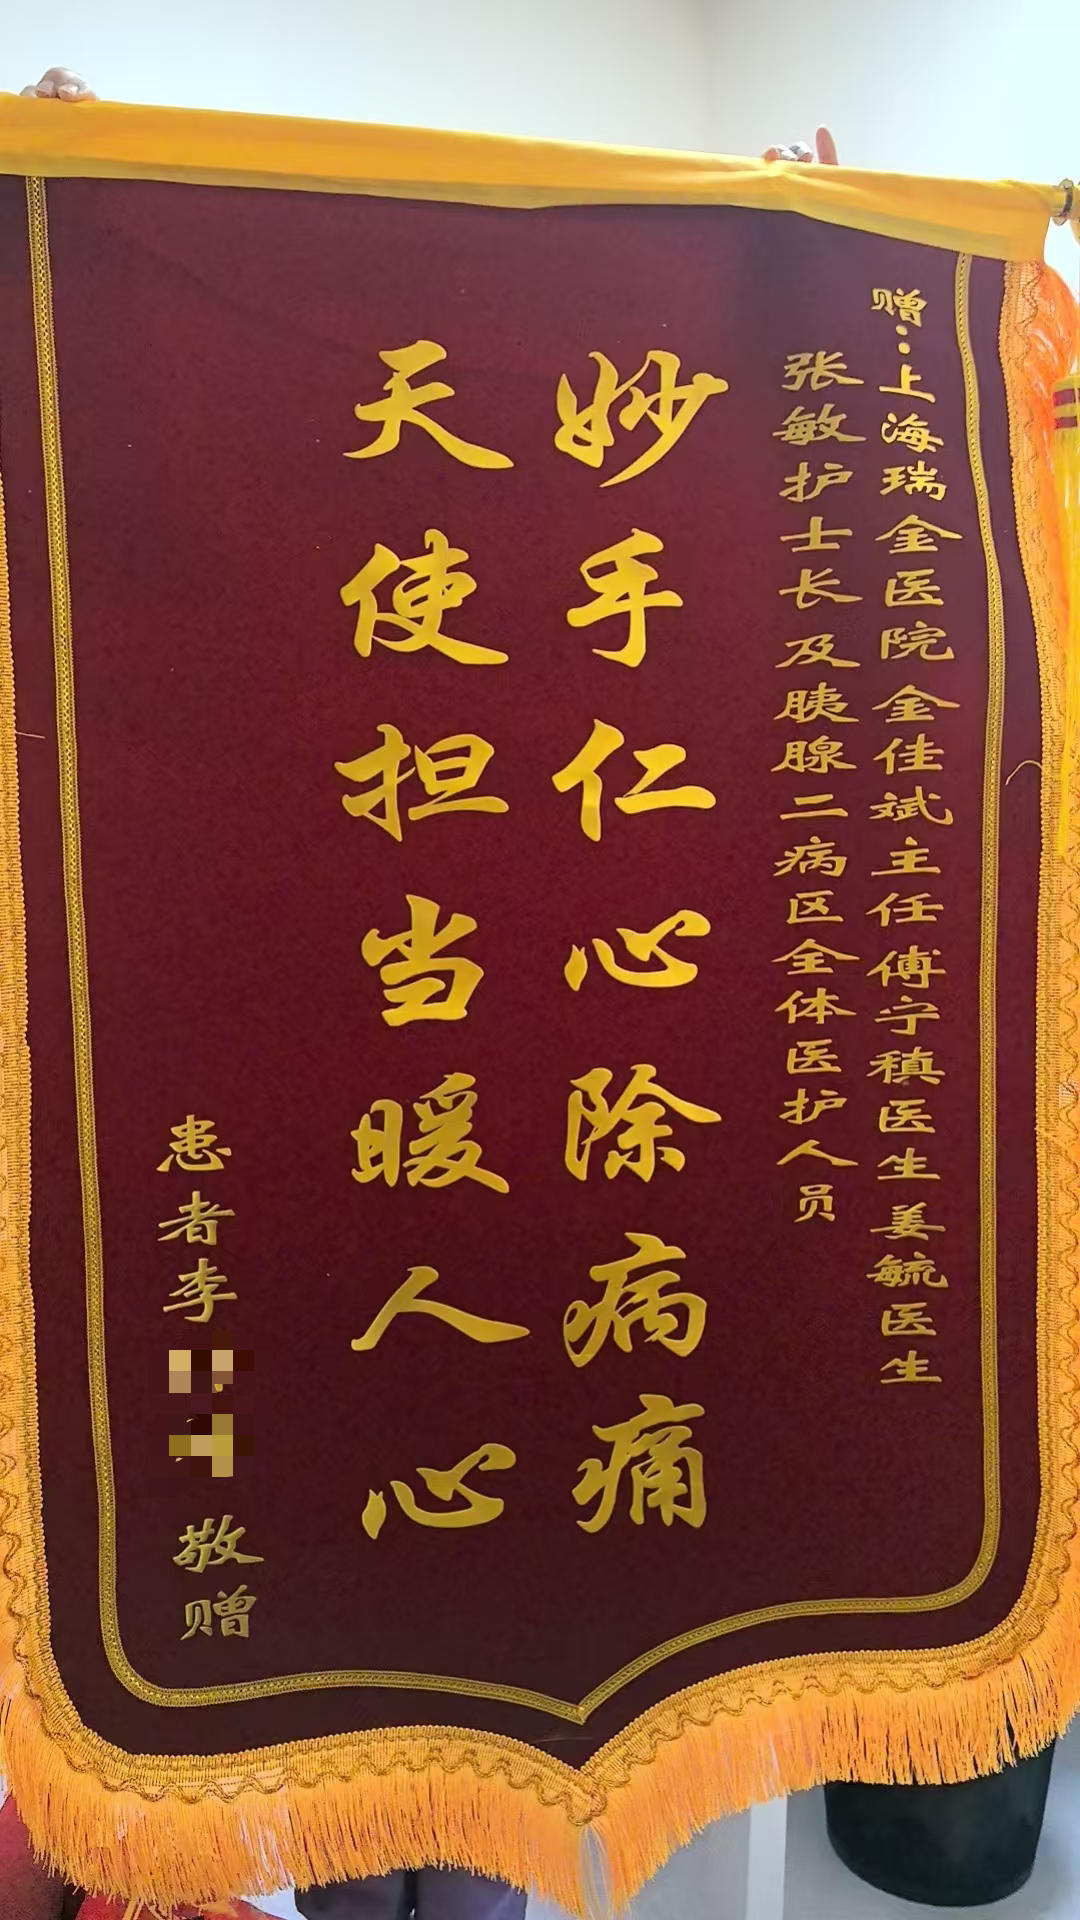 赠:上海瑞金医院金佳斌主任傅宁稹医生姜毓医生
张敏护士长及胰腺二病区全体医护人员
妙手仁心除病痛
天使担当暖人心
患者李
敬赠